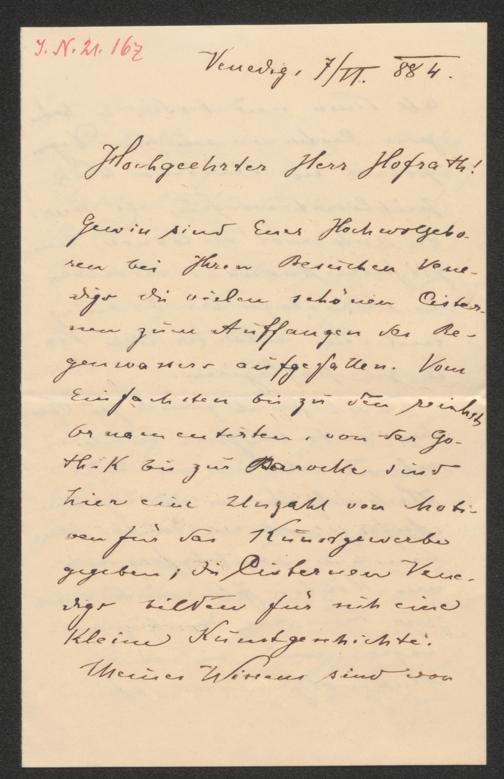 J. N. 21. 167
Venedig, 7/VI. 884.
Hochgeehrter Herr Hofrath!
Gewiss sind Euer Hochwolgebo-
ren bei Ihren Besuchen Vene-
digs die vielen schönen Cister-
nen zum Auffangen des Re-
genwassers aufgefallen. Vom
Einfachsten bis zu den reichst
ornamentirten, von der Go-
thik bis zur Barocke sind
hier eine Unzahl von Moti-
ven für das Kunstgewerbe
gegeben; die Cisternen Vene-
digs bilden für sich eine
kleine Kunstgeschichte.
Meines Wissens sind von